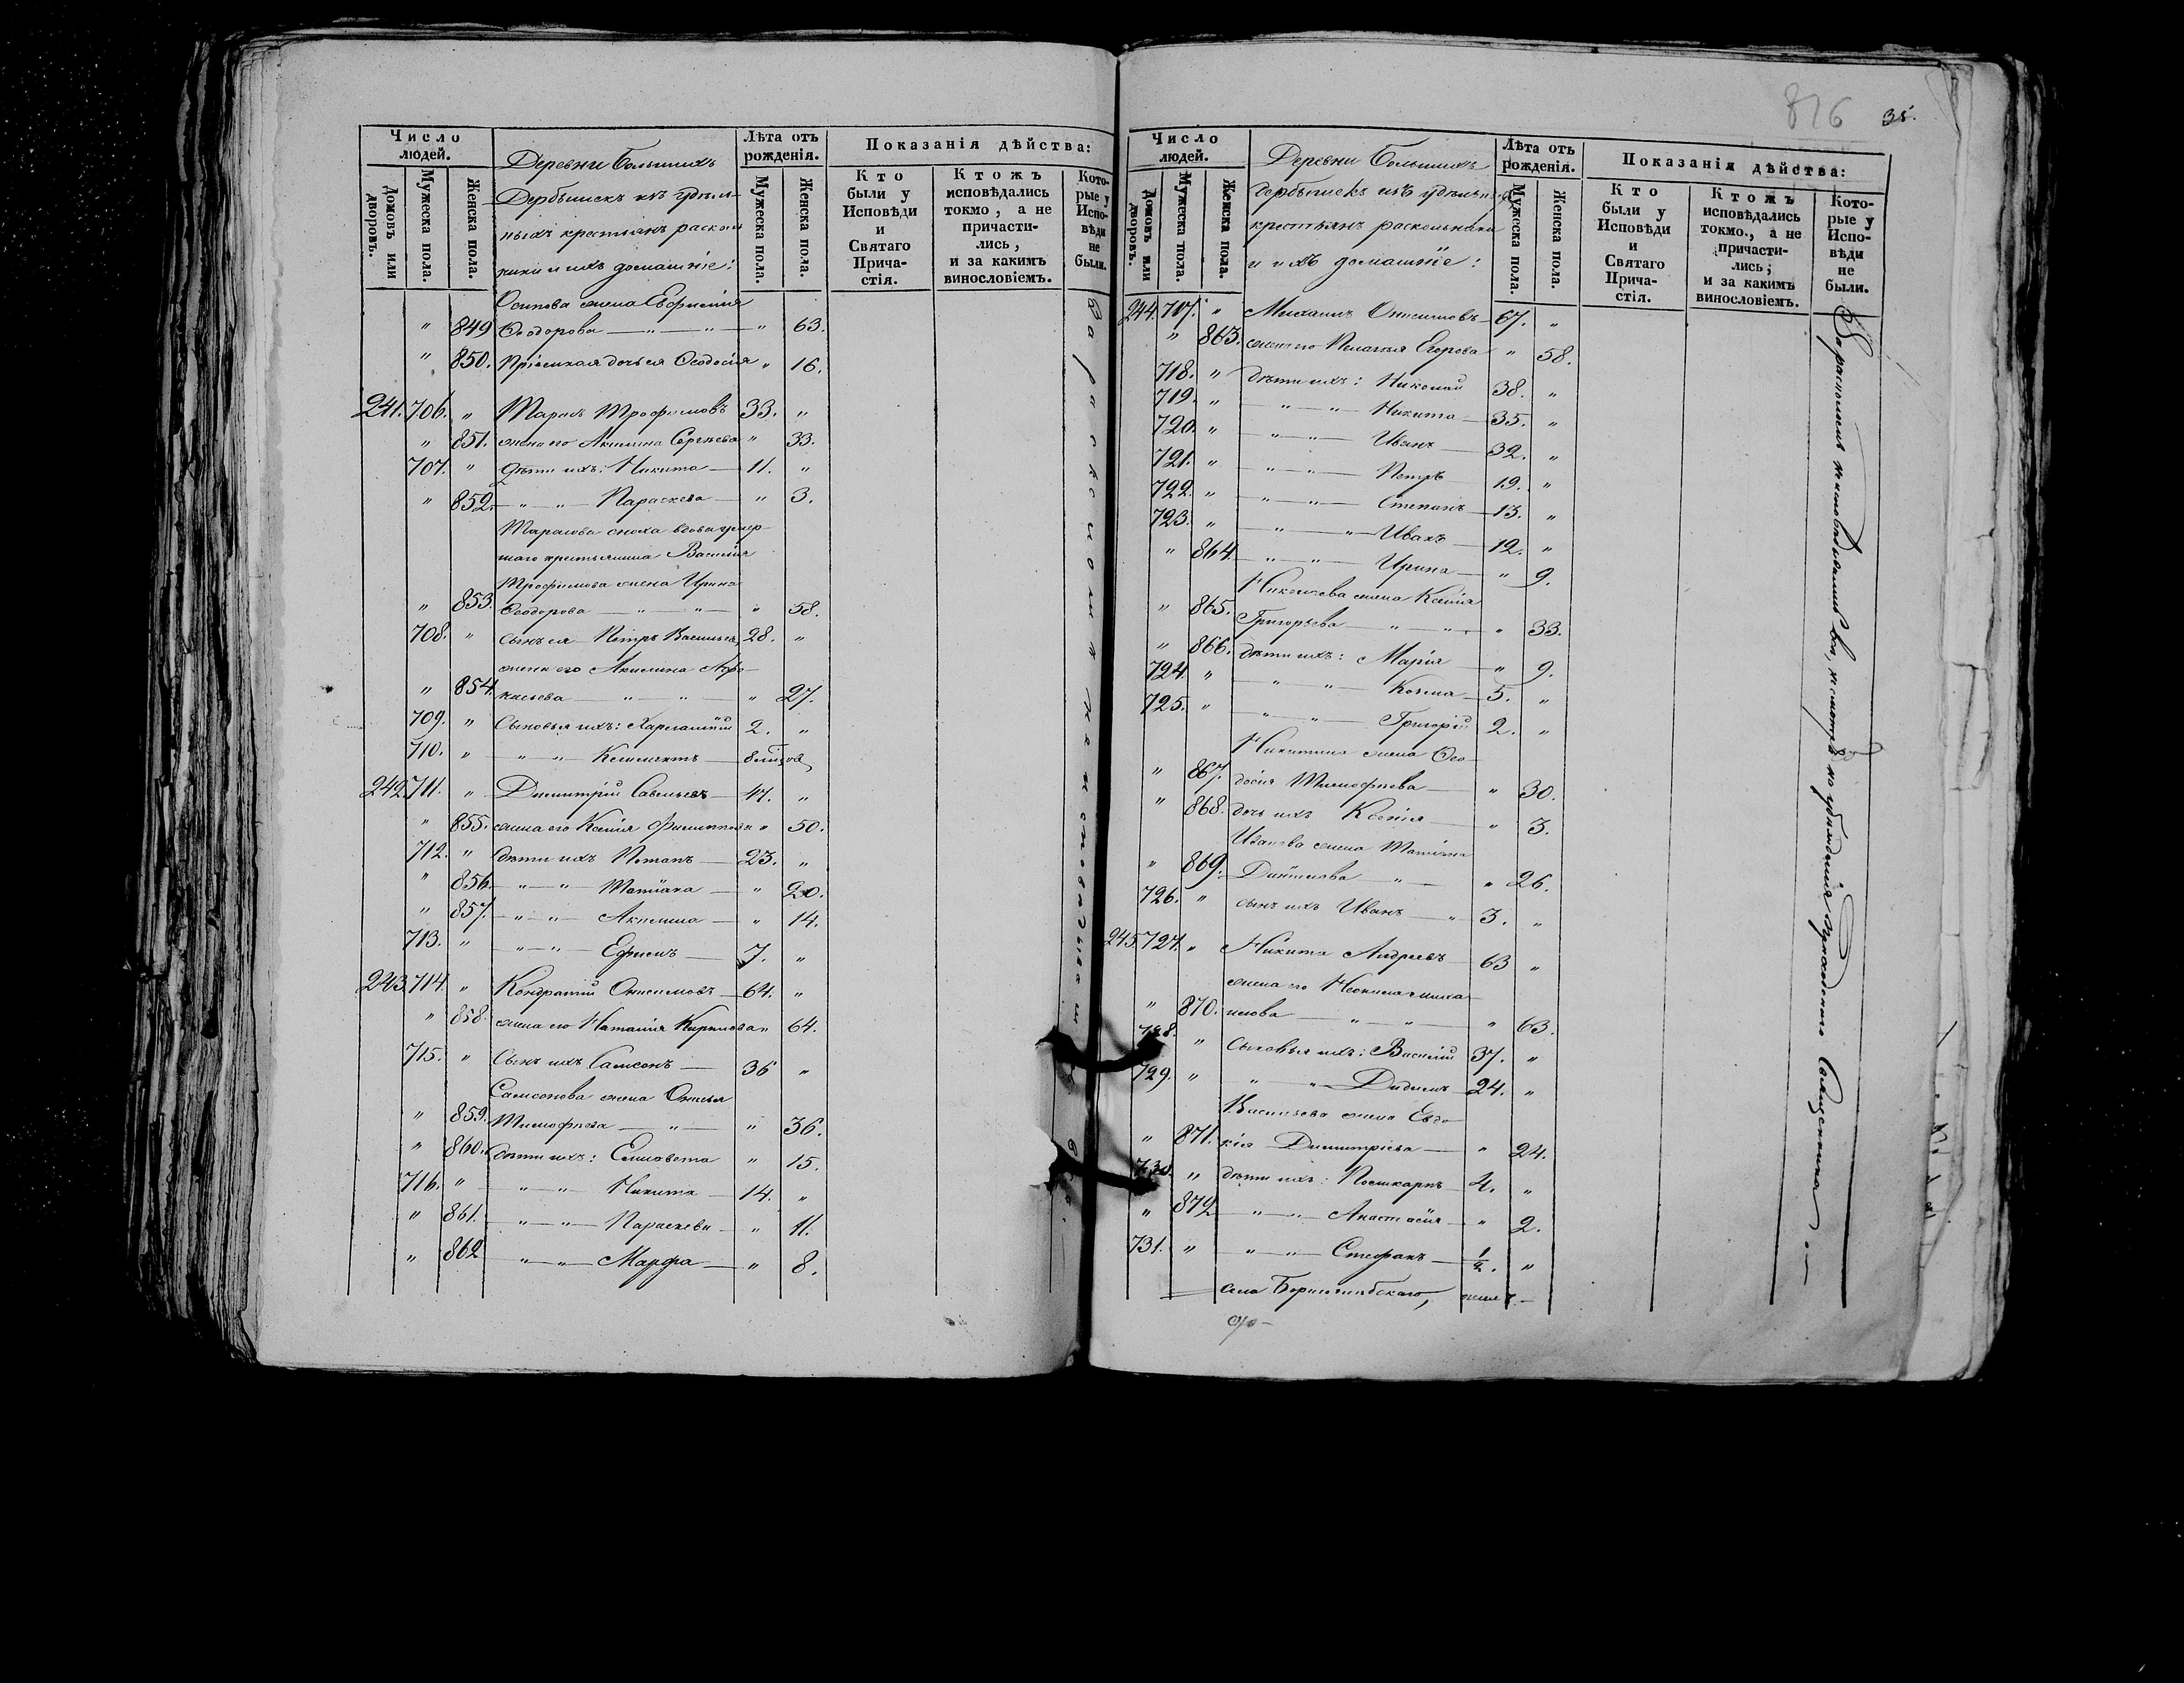 816 35.
Число людей.
Домовъ или дворовъ.
Мужеска пола.
Женска пола.
Деревни Большихъ
Дербышекъ изъ удѣль-
ныхъ крестьянъ раскол
ники и ихъ домашніе:
Лѣта отъ рожденія.
Мужеска пола.
Женска пола.
Показанія дѣйства:
Кто были у Исповѣди и Святаго Прича-стія.
Ктожъ исповѣдались токмо, а не причасти-лись, и за какимъ винословіемъ.
Кото-рые у Испо-вѣди не были.
Осипова жена Евфимія
" 849 Ѳеодорова — " — " — " 63.
" 850. Пріемная дочь ея Ѳеодосія " 16.
241. 706. " Тарасъ Трофимовъ 33. "
" 851. жена его Акилина Сергѣева " 33.
707. " дѣти ихъ: Никита — 11. "
" 852. — " — " — Параскева — " 3.
Тарасова сноха вдова умер-
шаго крестьянина Василія
Трофимова жена Ирина
" 853. Ѳеодорова — " — " — " 58.
708. " сынъ ея Петръ Васильев 28. "
жена его Акилина Афа-
" 854. насьева " " " 27.
709. " Сыновья ихъ: Харлампій 2. "
710. " " — " — Климентъ —
242. 711. " Димитрій Савельевъ — 47. "
" 855. жена его Ксенія Филиппова " 50.
712. " дѣти ихъ Потапъ — 23. "
" 856. — " — " — Татіана — " 20.
" 857. — " — " — Акилина — " 14.
713. " " — " — Ефимъ — 7. "
243. 714. " Кондратій Онисимовъ — 64. "
" 858. жена его Наталія Кирилова " 64.
715. " Сынъ ихъ Самсонъ — 36 "
Самсонова жена
" 859. Тимофѣева — " — " 36.
" 860. дѣти ихъ: Елисавета " 15.
716. " " — " — Никита — 14. "
" 861. " — " — Параскева — " 11.
" 862 " — " — Марфа — " 8.
За расколомъ не исповѣдывались всѣ.
Число людей.
Домовъ или дворовъ.
Мужеска пола.
Женска пола.
Деревни Большихъ
дербышекъ изъ удѣльныхъ
крестьянъ раскольники
и ихъ домашніе:
Лѣта отъ рожденія.
Мужеска пола.
Женска пола.
Показанія дѣйства:
Кто были у Исповѣди и Святаго Прича-стія.
Ктожъ исповѣдались токмо., а не причасти-лись; и за какимъ винословіемъ.
Кото-рые у Испо-вѣди не были.
244. 717. " Михаилъ Онисимовъ — 67. "
" 863. жена его Пелагея Егорова " 58.
718. " дѣти ихъ: Николай 38. "
719. " " — " — Никита — 35. "
720. " " — " — Иванъ 32. "
721. " " — " — Петръ 19. "
722. " " — " — Степанъ — 13. "
723. " " — " — Иванъ 12. "
" 864. — " — " — Ирина — " 9.
Николаева жена Ксенія
" 865. Григорьева — " — " — " 33.
" 866. дѣти ихъ: Марія — " 9.
724. " — " — " — Козма — 5. "
725. " — " — " — Григорій 2. "
Никитина жена Ѳео-
" 867. досія Тимофѣева — " 30.
" 868. дочь ихъ Ксенія — " 3.
Иванова жена Татіана
" 869. — " — " 26.
726. " сынъ ихъ Иванъ — " 3. "
245. 727. " Никита Андреевъ 63 "
жена его
" 870. — " — " — " 63.
728. " Сыновья ихъ: Василій 37. "
729. " " — " — Дидимъ 24. "
Васильева жена Евдо-
" 871. кія Димитріева — " 24.
730. " дѣти ихъ: Поликарпъ 4. "
" 872 — " — " — Анастасія — " 2.
731. " " — " — Стефанъ — 1/2. "
За расколомъ не исповѣдывались всѣ, не смотря на убѣжденія приходскаго Священника. —
села